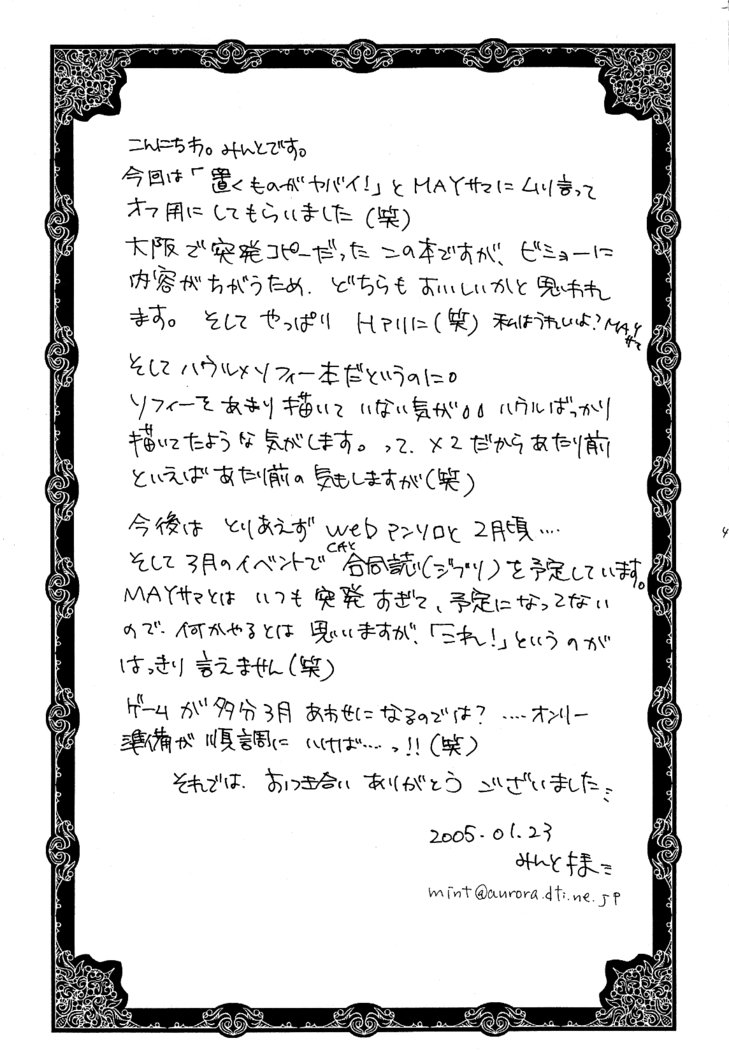 こんにちわ。みんとです。
今回は「置くものがヤバイ!」とMAYサマにムリ言って
オフ用にしてもらいました(笑)
大阪で突発コピーだったこの本ですが、ビミョーに
内容がちがうため、どちらもおいしいかと思われ
ます。そしてやっぱり HPIIに(笑) 私はうれしいよ?MAY
サマ
そしてハウル×ソフィー本だというのに。
ソフィーをあまり描いていない気が。。ハウルばっかり
描いてたような気がします。って、×2だからあたり前
といえばあたり前の気もしますが(笑)
今後は とりあえず webアンソロと 2月頃‥‥
そして3月のイベントで CAYと 合同誌(ジブリ)を予定しています。
MAYサマとは いつも突発すぎて、予定になってない
ので、何かやるとは思いますが、「これ!」というのが
はっきり言えません(笑)
ゲームが多分3月あわせになるのでは?‥‥オンリー
準備が順調にいけば‥‥っ!!(笑)
それでは、おつき合いありがとうございました
2005.01.23
みんと様
mint@aurora.dti.ne.jp